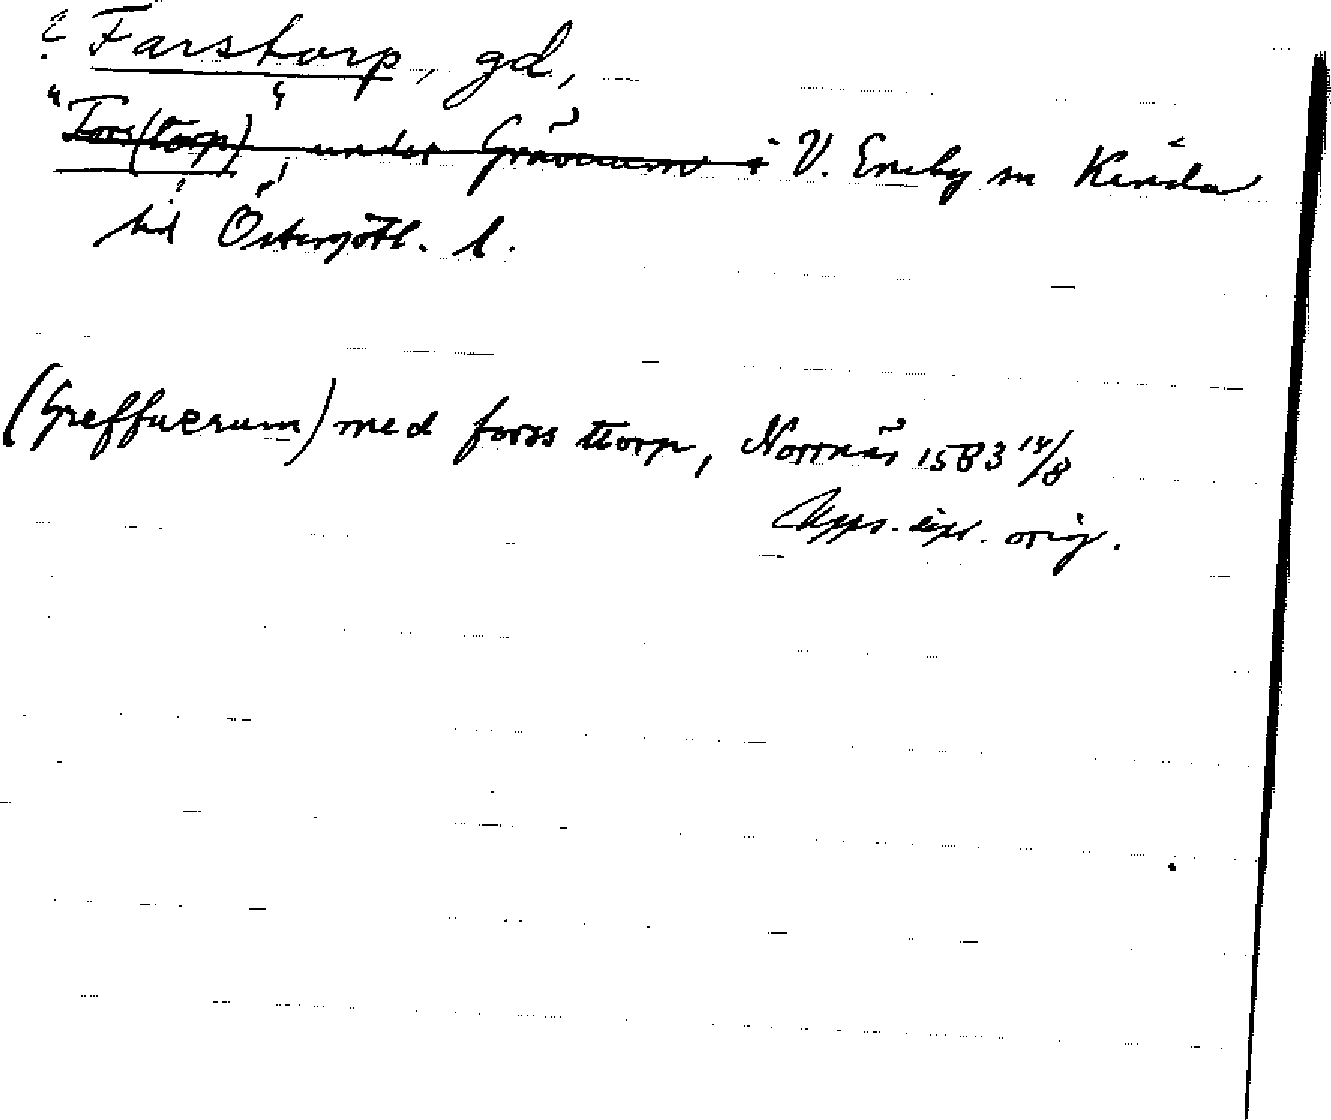 ? Farstorp, gd,
"Fors(torp)" under Grävsum i V. Eneby sn Kinda
hd Östergötl. l.
(Greffuersum) med forss torp, Norrnäs 1583 14/8
Upps. dpl. orig.